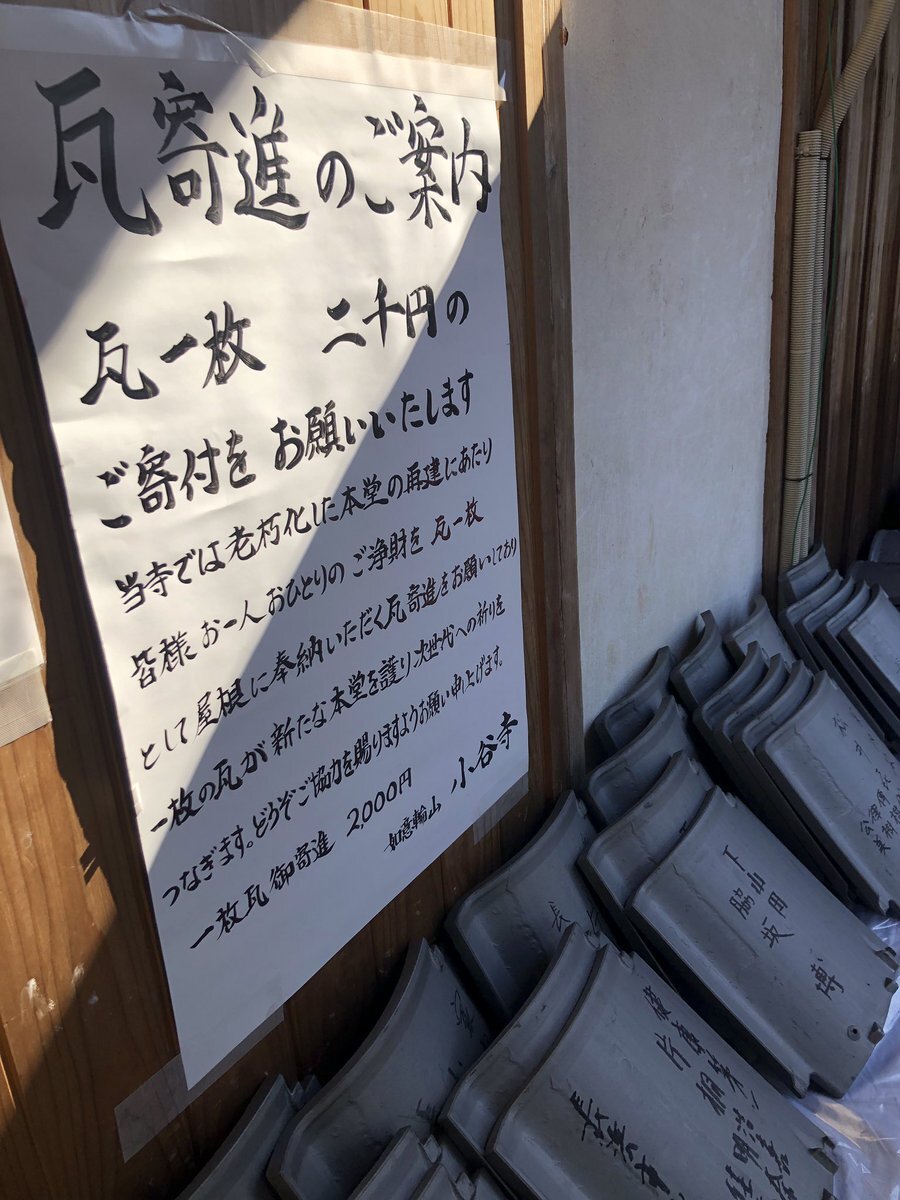 瓦寄進のご案内
瓦一枚 二千円の
ご寄付を お願いいたします
当寺では老朽化した本堂の再建にあたり
皆様 お一人おひとりの ご浄財を 瓦一枚
として屋根に奉納いただく瓦寄進をお願いしており
一枚の瓦が 新たな本堂を護り次世代への祈りを
つなぎます。どうぞご協力を賜りますようお願い申し上げます。
一枚瓦 御寄進 2,000円
如意輪山 小谷寺
下山田
脇坂 博